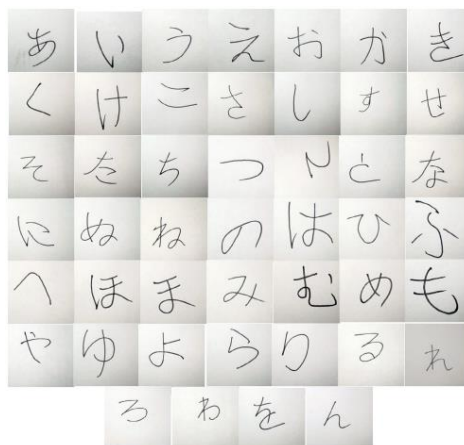 あいうえおかき
くけこさしすせ
そたちつてとな
にぬねのはひふ
へほまみむめも
やゆよらりるれ
ろわをん